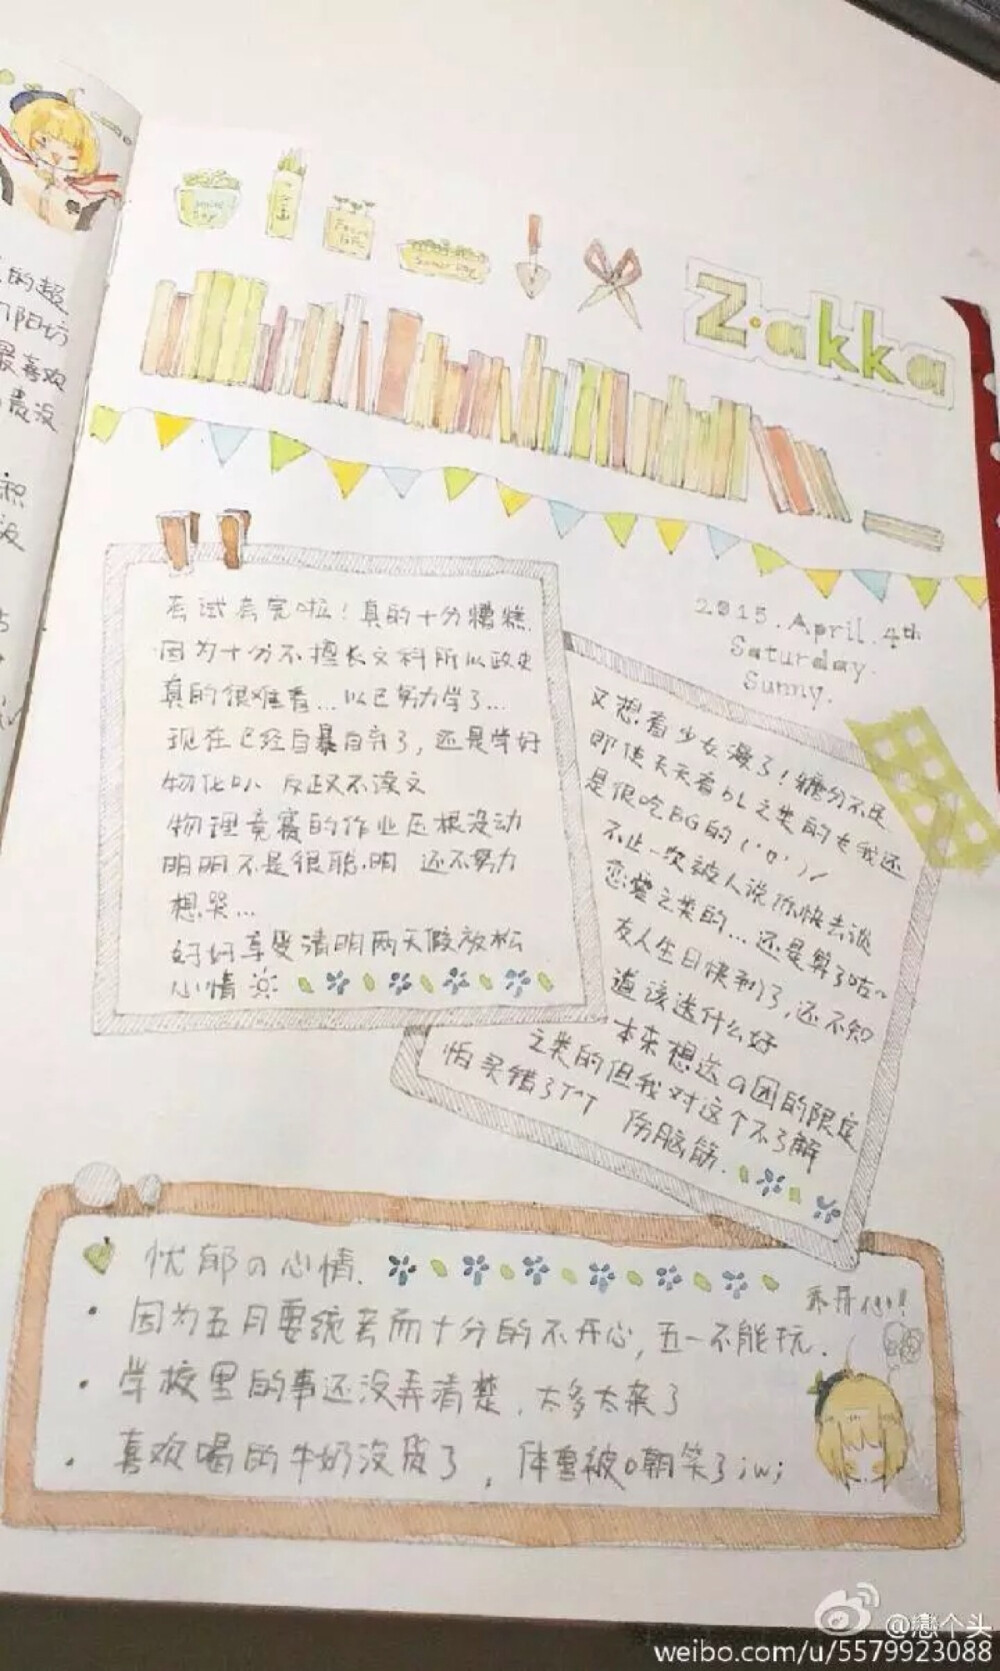 的超
阳坊
最喜欢
贵没
积
没
Zakka
2015.April.4th
Saturday.
Sunny.
考试考完啦！真的十分糟糕.
因为十分不擅长文科所以政史
真的很难看...以已努力学了...
现在已经自暴自弃了,还是学好
物化叭 反正不读文
物理竞赛的作业压根没动
明明不是很聪明 还不努力
想哭...
好好享受清明两天假放松
心情
又想看少女漫了！糖分不足
即使天天看bL之类的女我还
是很吃BG的 ('ロ')ノ
不止一次被人说你快去谈
恋爱之类的...还是算了咕~
友人生日快到了,还不知
道该送什么好
本来想送a团的限定
之类的但我对这个不了解
怕买错了T^T 伤脑筋.
忧郁の心情.
不开心!
· 因为五月要统考而十分的不开心,五一不能玩.
· 学校里的事还没弄清楚,太多太杂了
· 喜欢喝的牛奶没货了,体重被嘲笑了;w;
@戀个头
weibo.com/u/5579923088